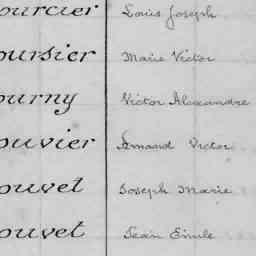 ourcier Louis Joseph
oursier Marie Victor
ourny Victor Alexandre
ouvier Armand Victor
ouvet Joseph Marie
ouvet Jean Emile